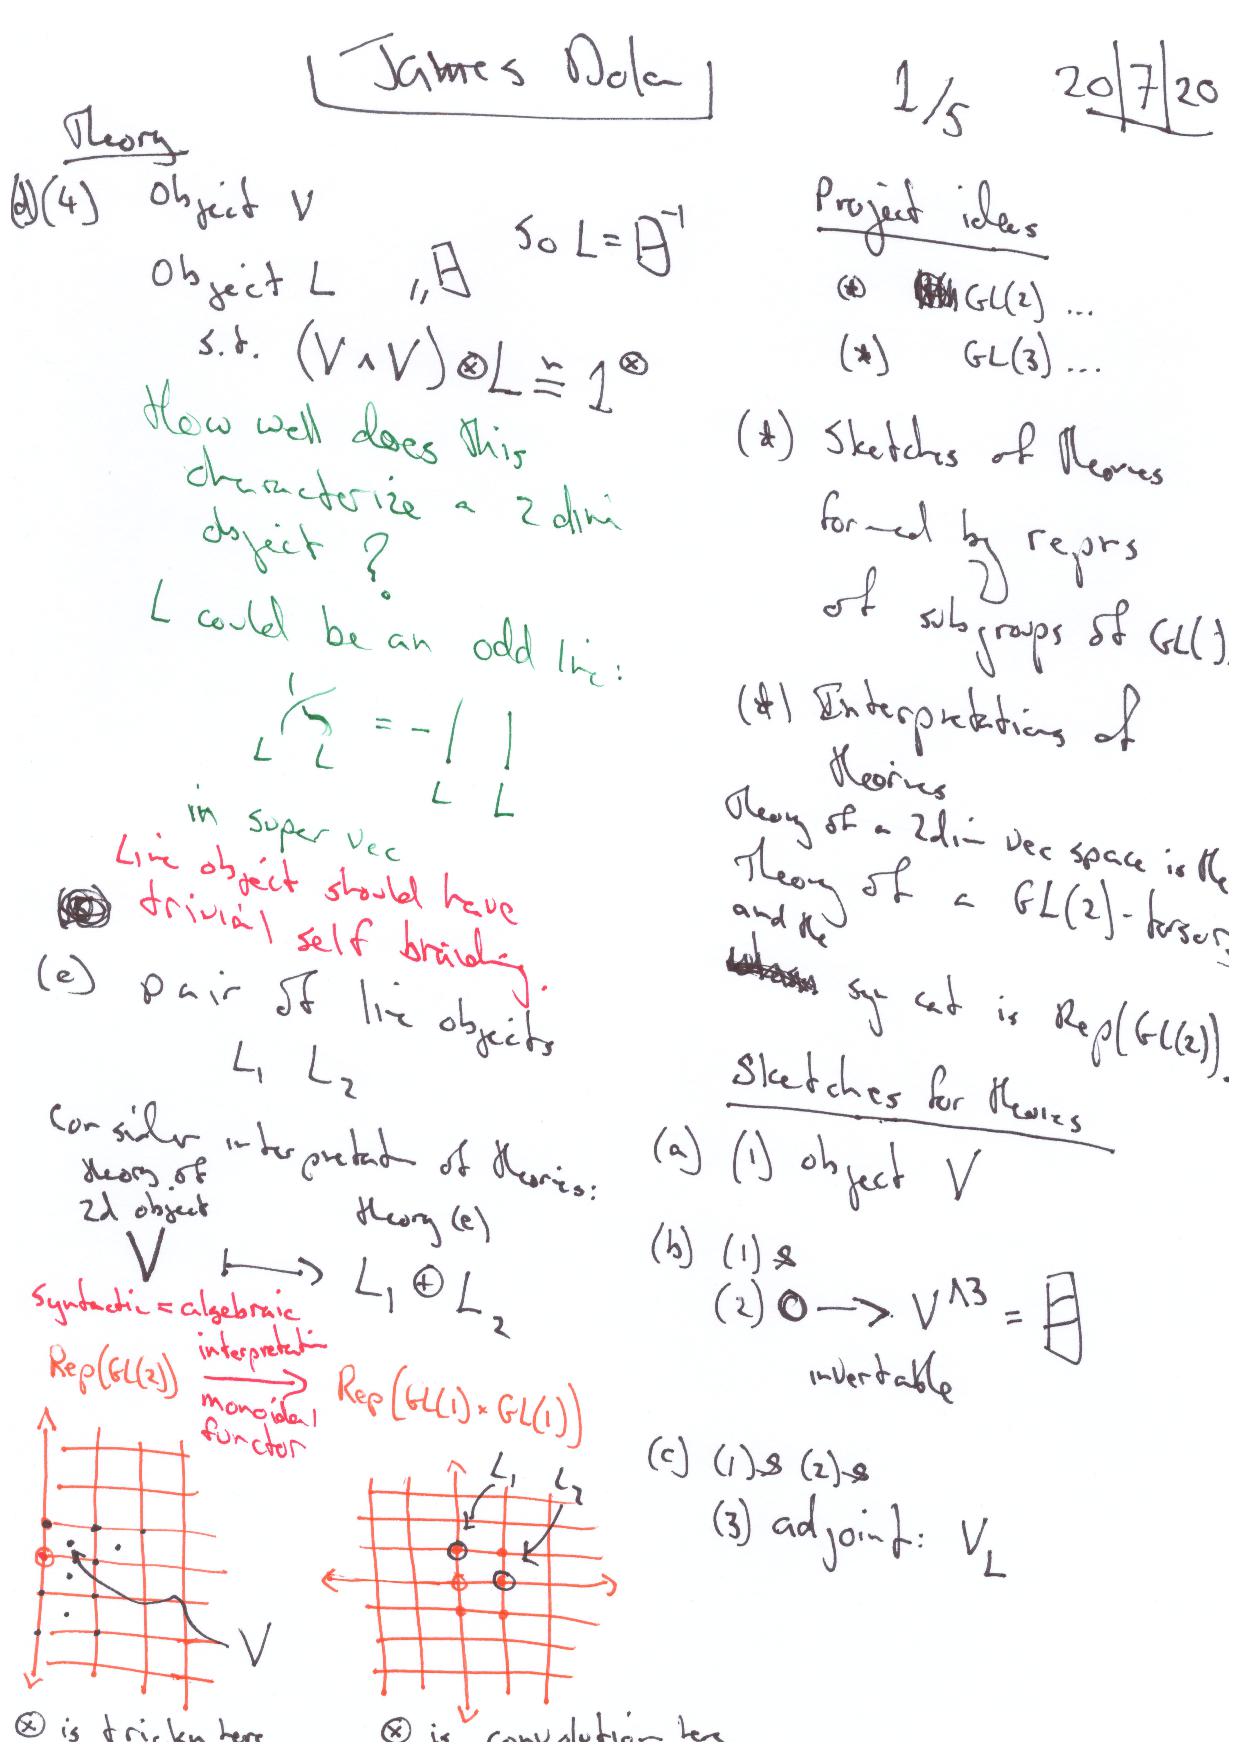 James Dolan
1/5
20/7/20
Theory
(d)(4) Object V
Object L ,, 日 so L = 日⁻¹
s.t. (V ∧ V) ⊗ L ≅ 1^⊗
How well does this
characterize a 2 dim
object ?
L could be an odd line:
= - | |
L L L L
in super vec
Line object should have
trivial self braiding.
(e) pair of line objects
L₁ L₂
Consider interpretation of theories:
theory of
2d object
theory (e)
V ⟼ L₁ ⊕ L₂
syntactic = algebraic
interpretation
Rep(GL(2)) → Rep(GL(1) × GL(1))
monoidal
functor
L₁ L₂
V
⊗ is tricky here
⊗ is convolution here
Project ideas
(*) GL(2) ...
(*) GL(3) ...
(*) Sketches of theories
formed by reprs
of subgroups of GL( ).
(*) Interpretations of
theories
Theory of a 2dim vec space is the
Theory of a GL(2)-torsor,
and the
syn cat is Rep(GL(2)).
Sketches for theories
(a) (1) object V
(b) (1) &
(2) O → V^∧3 =
invertable
(c) (1) & (2) &
(3) adjoint: V_L